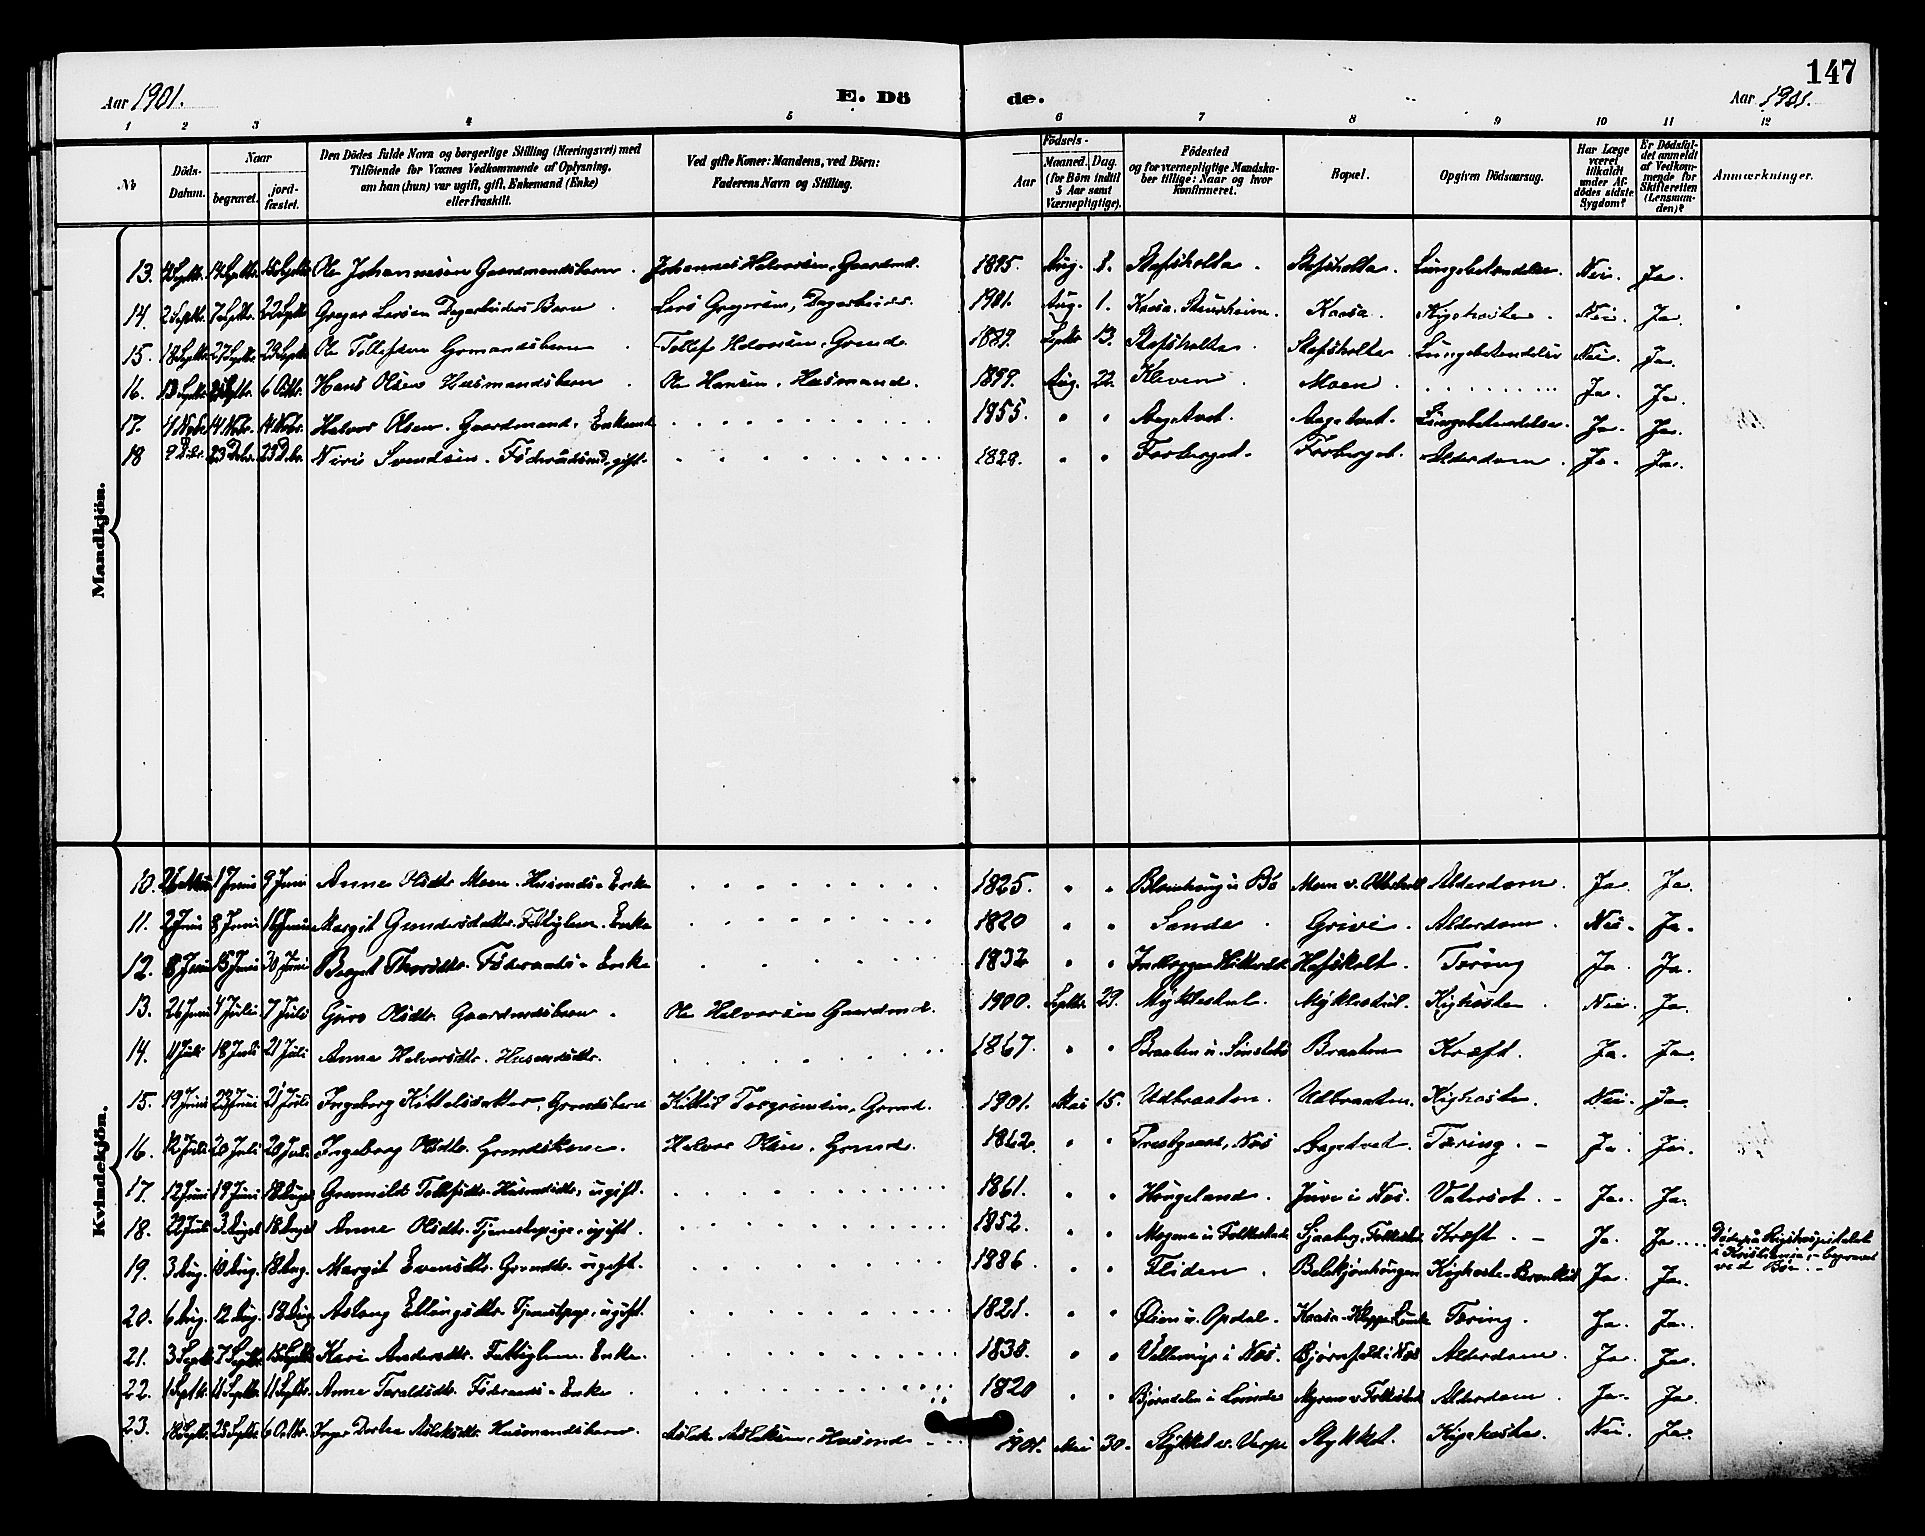 147
Aar 1901. E. Dö de. Aar 1901.
1 2 3 4 5 6 7 8 9 10 11 12
No Döds-Datum. Naar begravet. jord-fæstet. Den Dödes fulde Navn og borgerlige Stilling (Næringsvei) med Tilföiende for Voxnes Vedkommende af Oplysning, om han (hun) var ugift, gift, Enkemand (Enke) eller fraskilt. Ved gifte Koner: Mandens, ved Börn: Faderens Navn og Stilling. Födsels- Aar Maaned. Dag. (for Börn indtil 5 Aar samt Værnepligtige). Födested og for værnepligtige Mandskaber tillige: Naar og hvor konfirmeret. Bopæl. Opgiven Dödsaarsag. Har Læge været tilkaldt under Afdödes sidste Sygdom? Er Dödsfaldet anmeldt af Vedkommende for Skifteretten (Lensmanden)? Anmærkninger.
Mandkjön.
13. 14 Septbr. Ole Johannesen Gaardmandsbarn. Johannes Halvorsen, Gaardmd. 1895. Aug. 8. Stafsholta. Stafsholta. Lungebetændelse. Nei. Ja.
14. 2 Septbr. 7 Septbr. 22 Septbr. Gregar Larsen Dagarbeiders Barn. Lars Gregersen, Dagarbeider. 1901. Aug. 1. Kaasa. Kighoste. Nei. Ja.
15. 18 Septbr. 27 Septbr. 29 Septbr. Ole Tollefsen Grmandsbarn. Tollef Halvorsen, Grmd. 1889. Septbr. 13. Stafsholta. Stafsholta. Lungebetændelse Nei. Ja.
16. 13 Septbr. 6 Octbr. Hans Olsen Husmandsbarn. Ole Hansen, Husmand. 1899. Aug. 22. Kleven. Moen. Ja. Ja.
17. 4 Nobr. 14 Nobr. 14 Nobr. Halvor Olsen. Gaardmand. Enkemd. 1855. " " Aagetvet. Aagetvet. Lungebetændelse. Ja. Ja.
18 9 Dcbr. 23 Dcbr. 23 Dcbr. Niri Svendsen. Föderaadsmd., gift. 1828. " " Forberget. Forberget. Alderdom. Ja. Ja.
Kvindekjön.
10. 26 Mai 1 Juni 9 Juni Anne Olsdtr. Moen. Husmds. Enke 1825. " " Blomhaug i Bö Moen Alderdom. Ja. Ja.
11. 2 Juni 8 Juni 16 Juni Margit Gundersdatter. Fattiglem. Enke 1820 " " Sande. Grivi. Alderdom. Nei. Ja.
12. 8 Juni 15 Juni 30 Juni Berget Thorsdtr. Föderaads. Enke 1832 " " Hafskolt. Tæring Ja. Ja.
13. 26 Juni 4 Juli 7 Juli Guro Olsdtr. Gaardmdsbarn. Ole Halvorsen Gaardmd. 1900. Septbr. 29. Myklestul. Myklestul. Kighoste Nei. Ja.
14. 11 Juli 18 Juli 21 Juli Anne Halvorsdtr. Husmdsdtr. 1867. " " Braaten Braaten Kræft. Ja. Ja.
15. 19 Juni 23 Juni 21 Juli Ingeborg Kittelsdatter, Grmdsbarn Kittil Torgrimsen, Grmd. 1901. Mai 15. Udbraaten. Udbraaten. Kighoste. Nei. Ja.
16. 12 Juli 20 Juli 20 Juli Ingeborg Olsdtr. Grmdskone. Halvor Olsen, Grmd. 1862. " " Prestgaard, Næs Aagetvet Tæring. Ja. Ja.
17. 12 Juni 19 Juni Gunnild Tollefsdtr. Husmdsdtr, ugift. 1861. " " Haugeland. Juve i Næs. Vatersot. Ja. Ja.
18. 22 Juli 3 Augst 18 Augst Anne Olsdtr. Tjenestepige, ugift. 1852. " " Mogene Kræft. Ja. Ja. Döde paa Rigshospitalet i Kristiania, begravet ved Böe.
19. 3 Aug. 10 Aug. 18 Aug. Margit Evensdtr. Grmdtr. ugift. 1886 " " Fliden. Kighoste Ja. Ja.
20. 6 Aug. 12 Aug. 18 Aug. Aslaug Ellingsdtr. ugift. 1821. " " Öien Kaasa Tæring. Ja. Ja.
21. 3 Septbr. 7 Septbr. 15 Septbr. Kari Andersdtr. Fattiglem. Enke. 1838. " " i Næs. Alderdom. Ja. Ja.
22. 1 Septbr. 11 Septbr. 11 Septbr. Anne Taraldsdtr. Föderaads. Enke. 1820 " " Björndalen i Lunde Alderdom. Ja. Ja.
23. 18 Septbr. 25 Septbr. 6 Octbr. Inger Dorthea Aslaksdtr. Husmandsbarn. Aslak Aslaksen, Husmd. 1901. Mai 30. Stykket Stykket. Kighoste. Nei. Ja.